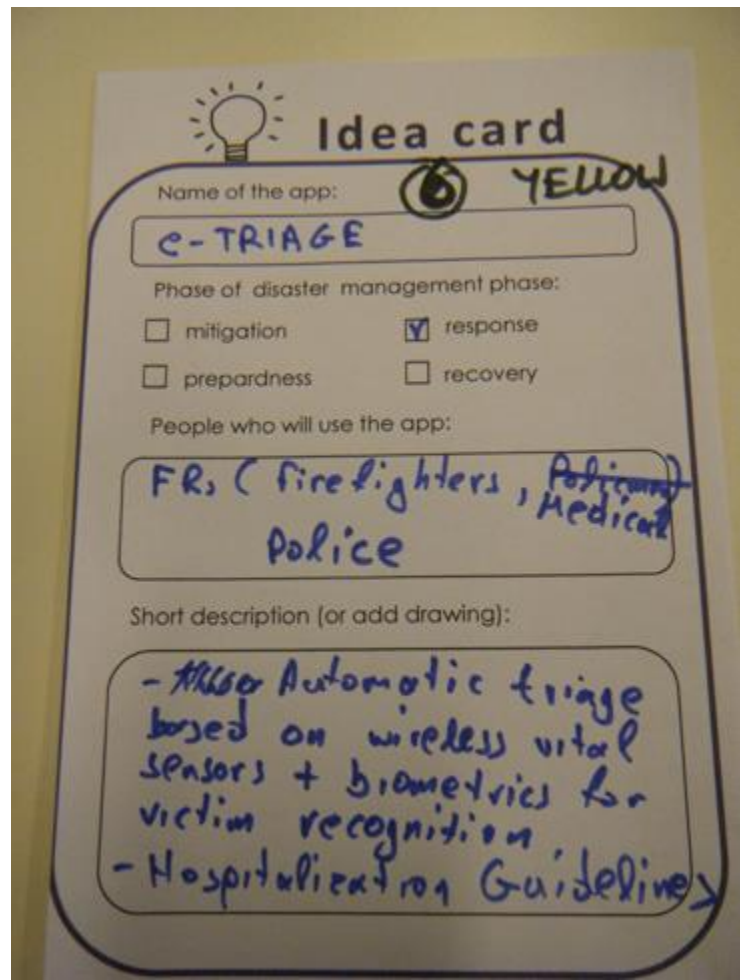 Idea card
Name of the app: 6 YELLOW
e-TRIAGE
Phase of disaster management phase:
mitigation response
prepardness recovery
People who will use the app:
FRs (firefighters, Medical
Police
Short description (or add drawing):
- Automatic triage
based on wireless vital
sensors + biometrics for
victim recognition
- Hospitalization Guidelines